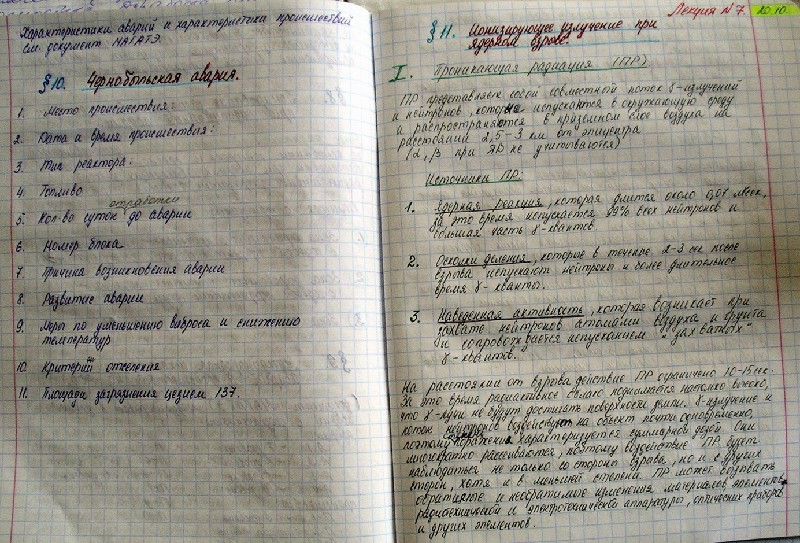 Характеристики аварий и характеристика происшествий
см. документ МАГАТЭ.
§10. Чернобыльская авария.
1. Место происшествия:
2. Дата и время происшествия:
3. Тип реактора:
4. Топливо
отработки
5. Кол-во суток до аварии
6. Номер блока
7. Причина возникновения аварии
8. Развитие аварии
9. Меры по уменьшению выброса и снижению
температур
10. Критерии отселения
11. Площади загрязнения цезием 137.
Лекция №7. 20.10.
§11. Ионизирующее излучение при
ядерном взрыве.
I. Проникающая радиация (ПР)
ПР представляет собой совместный поток γ-излучений
и нейтронов, которые испускаются в окружающую среду
и распространяются в приземном слое воздуха на
расстоянии 2,5-3 км от эпицентра
(α, β при ЯВ не учитываются)
Источники ПР:
1. Ядерная реакция, которая длится около 0,07 мсек,
за это время испускается 99% всех нейтронов и
большая часть γ-квантов
2. Осколки деления, которые в течение 2-3 сек после
взрыва испускают нейтроны и более длительное
время γ-кванты.
3. Наведенная активность, которая возникает при
захвате нейтронов атомами воздуха и грунта
и сопровождается испусканием "захватных"
γ-квантов.
На расстоянии от взрыва действие ПР ограничено 10-15 сек.
За это время радиоактивное облако поднимается настолько высоко,
что γ-лучи не будут достигать поверхности земли. γ-излучение и
поток нейтронов воздействует на объект почти одновременно,
поэтому поражение характеризуется суммарной дозой. Они
многократно рассеиваются, поэтому воздействие ПР будет
наблюдаться не только со стороны взрыва, но и с других
сторон, хотя и в меньшей степени. ПР может вызывать
обратимые и необратимые изменения материалов, элементов
радиотехнической и электротехнической аппаратуры, оптических приборов
и других элементов.